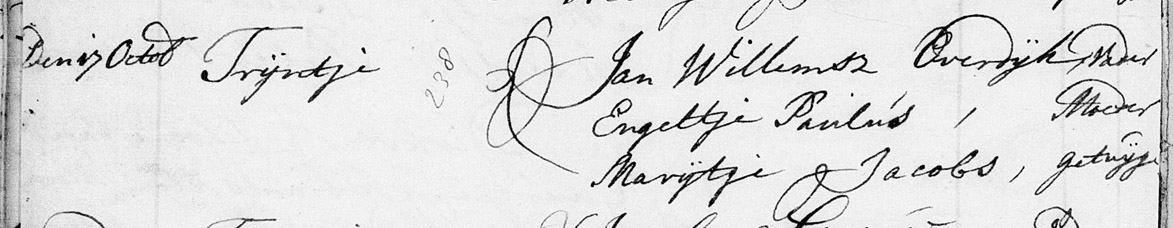 Den 17 Octob Trijntje 238 Jan Willemsz Overdijk, Vader
Engeltje Paulus, Moeder
Marijtje Jacobs, getuijge